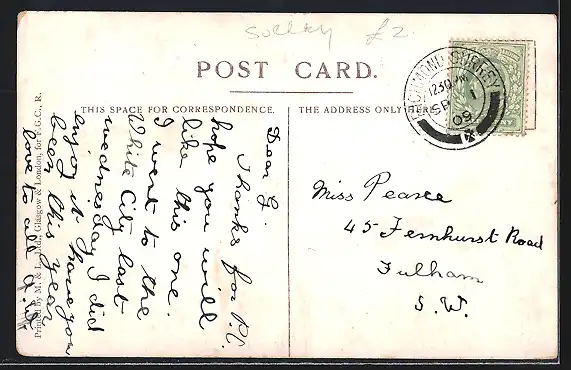 Surrey £2
POST CARD.
THIS SPACE FOR CORRESPONDENCE.
THE ADDRESS ONLY HERE.
RICHMOND, SURREY
1230PM
SP 1
09
Dear G.
Thanks for P.C.
hope you will
like this one.
I went to the
White City last
wednesday I did
enjoy it have you
been this year
love to all
Miss Pearce
45 Fernhurst Road
Fulham
S.W.
Printed by M. & L., Ltd., Glasgow & London, for F.G.C., R.